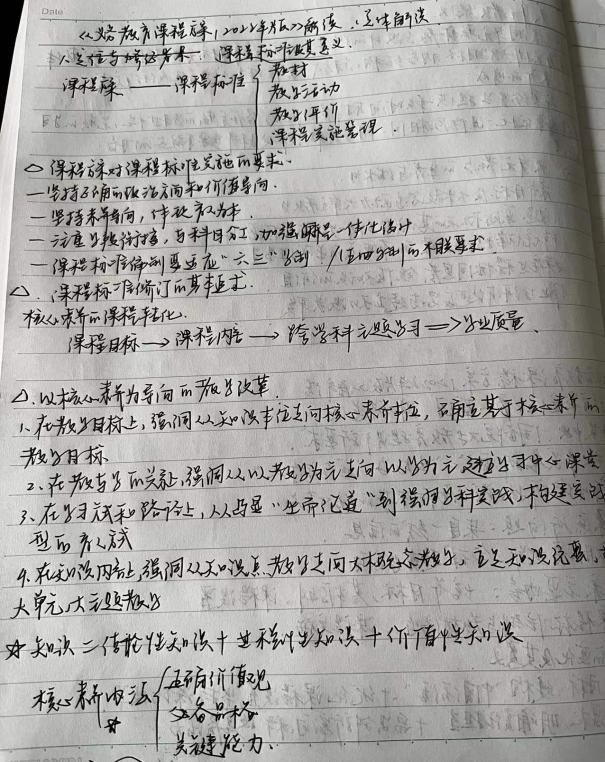 Date
《义务教育课程方案(2022年版)》解读:总体解读
课程标准及其意义.
课程方案 —— 课程标准 { 教材
教学活动
教学评价
课程实施管理.
○ 课程方案对课程标准实施的要求.
— 坚持正确的政治方向和价值导向.
— 坚持素养导向,体现育人为本.
— 注重学段衔接,与科目分工,加强课程一体化设计
— 课程标准编制要适应“六三”学制/“五四”学制的不同要求
△. 课程标准修订的基本追求.
核心素养的课程转化.
课程目标 → 课程内容 → 跨学科主题学习 ⟹ 学业质量.
△. 以核心素养为导向的教学改革.
1. 在教学目标上,强调从知识本位走向核心素养本位,确立基于核心素养的
教学目标
2. 在教与学的关系上,强调从以教学为主走向以学为主,建立学习中心课堂
3. 在学习方式和路径上,从凸显“坐而论道”到强调学科实践,构建实践
型的育人方式
4. 在知识内容上,强调从知识点教学走向大概念教学,立足知识统整,
大单元,大主题教学
☆ 知识 = 结论性知识 + 过程性知识 + 价值性知识
核心素养 { 正确价值观
☆ 必备品格
关键能力.